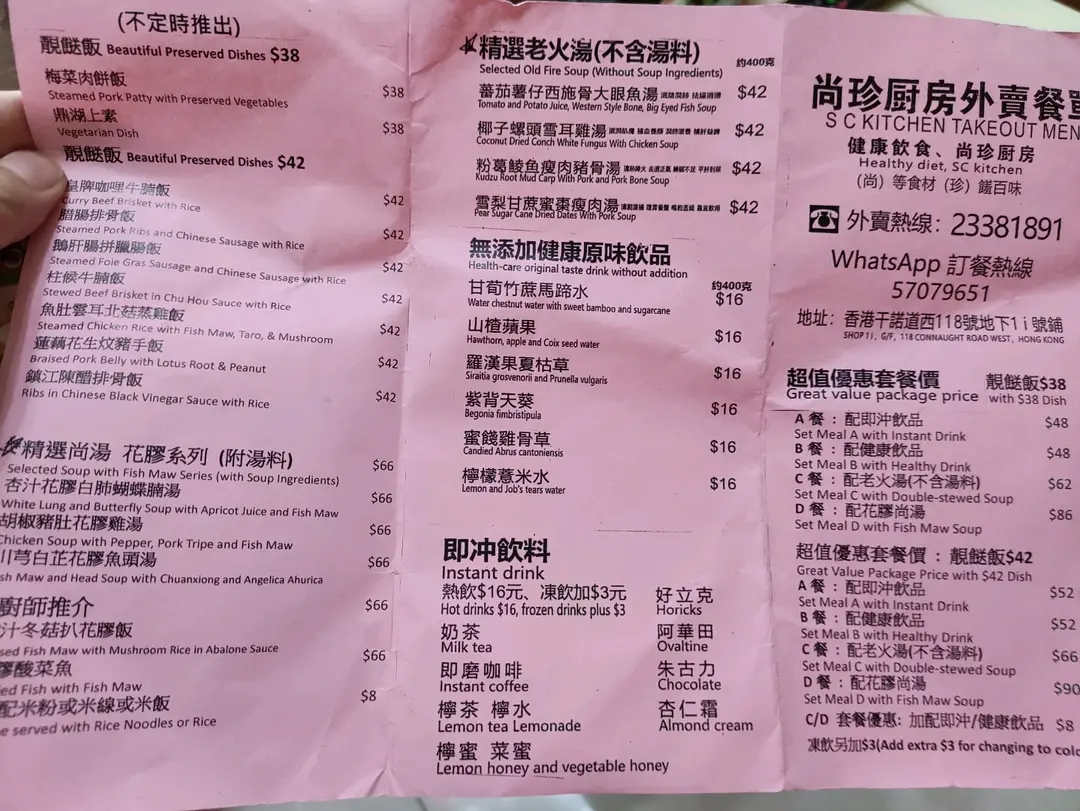 (不定時推出)
靚餸飯 Beautiful Preserved Dishes $38
梅菜肉餅飯
Steamed Pork Patty with Preserved Vegetables $38
鼎湖上素
Vegetarian Dish $38
靚餸飯 Beautiful Preserved Dishes $42
皇牌咖哩牛腩飯
Curry Beef Brisket with Rice $42
腊腸排骨飯
Steamed Pork Ribs and Chinese Sausage with Rice $42
鵝肝腸拼臘腸飯
Steamed Foie Gras Sausage and Chinese Sausage with Rice $42
柱候牛腩飯
Stewed Beef Brisket in Chu Hou Sauce with Rice $42
魚肚雲耳北菇蒸雞飯
Steamed Chicken Rice with Fish Maw, Taro, & Mushroom $42
蓮藕花生炆豬手飯
Braised Pork Belly with Lotus Root & Peanut $42
鎮江陳醋排骨飯
Ribs in Chinese Black Vinegar Sauce with Rice $42
精選尚湯 花膠系列 (附湯料)
Selected Soup with Fish Maw Series (with Soup Ingredients) $66
杏汁花膠白肺蝴蝶腩湯
White Lung and Butterfly Soup with Apricot Juice and Fish Maw $66
胡椒豬肚花膠雞湯
Chicken Soup with Pepper, Pork Tripe and Fish Maw $66
川芎白芷花膠魚頭湯
sh Maw and Head Soup with Chuanxiong and Angelica Ahurica $66
廚師推介
汁冬菇扒花膠飯 $66
sed Fish with Mushroom Rice in Abalone Sauce
膠酸菜魚 $66
ed Fish with Fish Maw
配米粉或米線或米飯 $8
e served with Rice Noodles or Rice
精選老火湯(不含湯料) 約400克
Selected Old Fire Soup (Without Soup Ingredients)
蕃茄薯仔西施骨大眼魚湯 $42
Tomato and Potato Juice, Western Style Bone, Big Eyed Fish Soup
椰子螺頭雪耳雞湯 $42
Coconut Dried Conch White Fungus With Chicken Soup
粉葛鯪魚瘦肉豬骨湯 $42
Kudzu Root Mud Carp With Pork and Pork Bone Soup
雪梨甘蔗蜜棗瘦肉湯 $42
Pear Sugar Cane Dried Dates With Pork Soup
無添加健康原味飲品
Health-care original taste drink without addition
約400克
甘荀竹蔗馬蹄水 $16
Water chestnut water with sweet bamboo and sugarcane
山楂蘋果 $16
Hawthorn, apple and Coix seed water
羅漢果夏枯草 $16
Siraitia grosvenorii and Prunella vulgaris
紫背天葵 $16
Begonia fimbristipula
蜜餞雞骨草 $16
Candied Abrus cantoniensis
檸檬薏米水 $16
Lemon and Job's tears water
即冲飲料
Instant drink
熱飲$16元、凍飲加$3元
Hot drinks $16, frozen drinks plus $3
奶茶
Milk tea
即磨咖啡
Instant coffee
檸茶 檸水
Lemon tea Lemonade
檸蜜 菜蜜
Lemon honey and vegetable honey
好立克
Horicks
阿華田
Ovaltine
朱古力
Chocolate
杏仁霜
Almond cream
尚珍厨房外賣餐單
S C KITCHEN TAKEOUT MEN
健康飲食、尚珍厨房
Healthy diet, SC kitchen
(尚) 等食材 (珍) 饈百味
外賣熱線: 23381891
WhatsApp 訂餐熱線
57079651
地址: 香港干諾道西118號地下1 i 號鋪
SHOP 1 i, G/F, 118 CONNAUGHT ROAD WEST, HONG KONG
超值優惠套餐價 靚餸飯$38
Great value package price with $38 Dish
A 餐 : 配即沖飲品 $48
Set Meal A with Instant Drink
B 餐 : 配健康飲品 $48
Set Meal B with Healthy Drink
C 餐 : 配老火湯(不含湯料) $62
Set Meal C with Double-stewed Soup
D 餐 : 配花膠尚湯 $86
Set Meal D with Fish Maw Soup
超值優惠套餐價 : 靚餸飯$42
Great Value Package Price with $42 Dish
A 餐 : 配即沖飲品 $52
Set Meal A with Instant Drink
B 餐 : 配健康飲品 $52
Set Meal B with Healthy Drink
C 餐 : 配老火湯(不含湯料) $66
Set Meal C with Double-stewed Soup
D 餐 : 配花膠尚湯 $90
Set Meal D with Fish Maw Soup
C/D 套餐優惠: 加配即沖/健康飲品 $8
凍飲另加$3(Add extra $3 for changing to cold